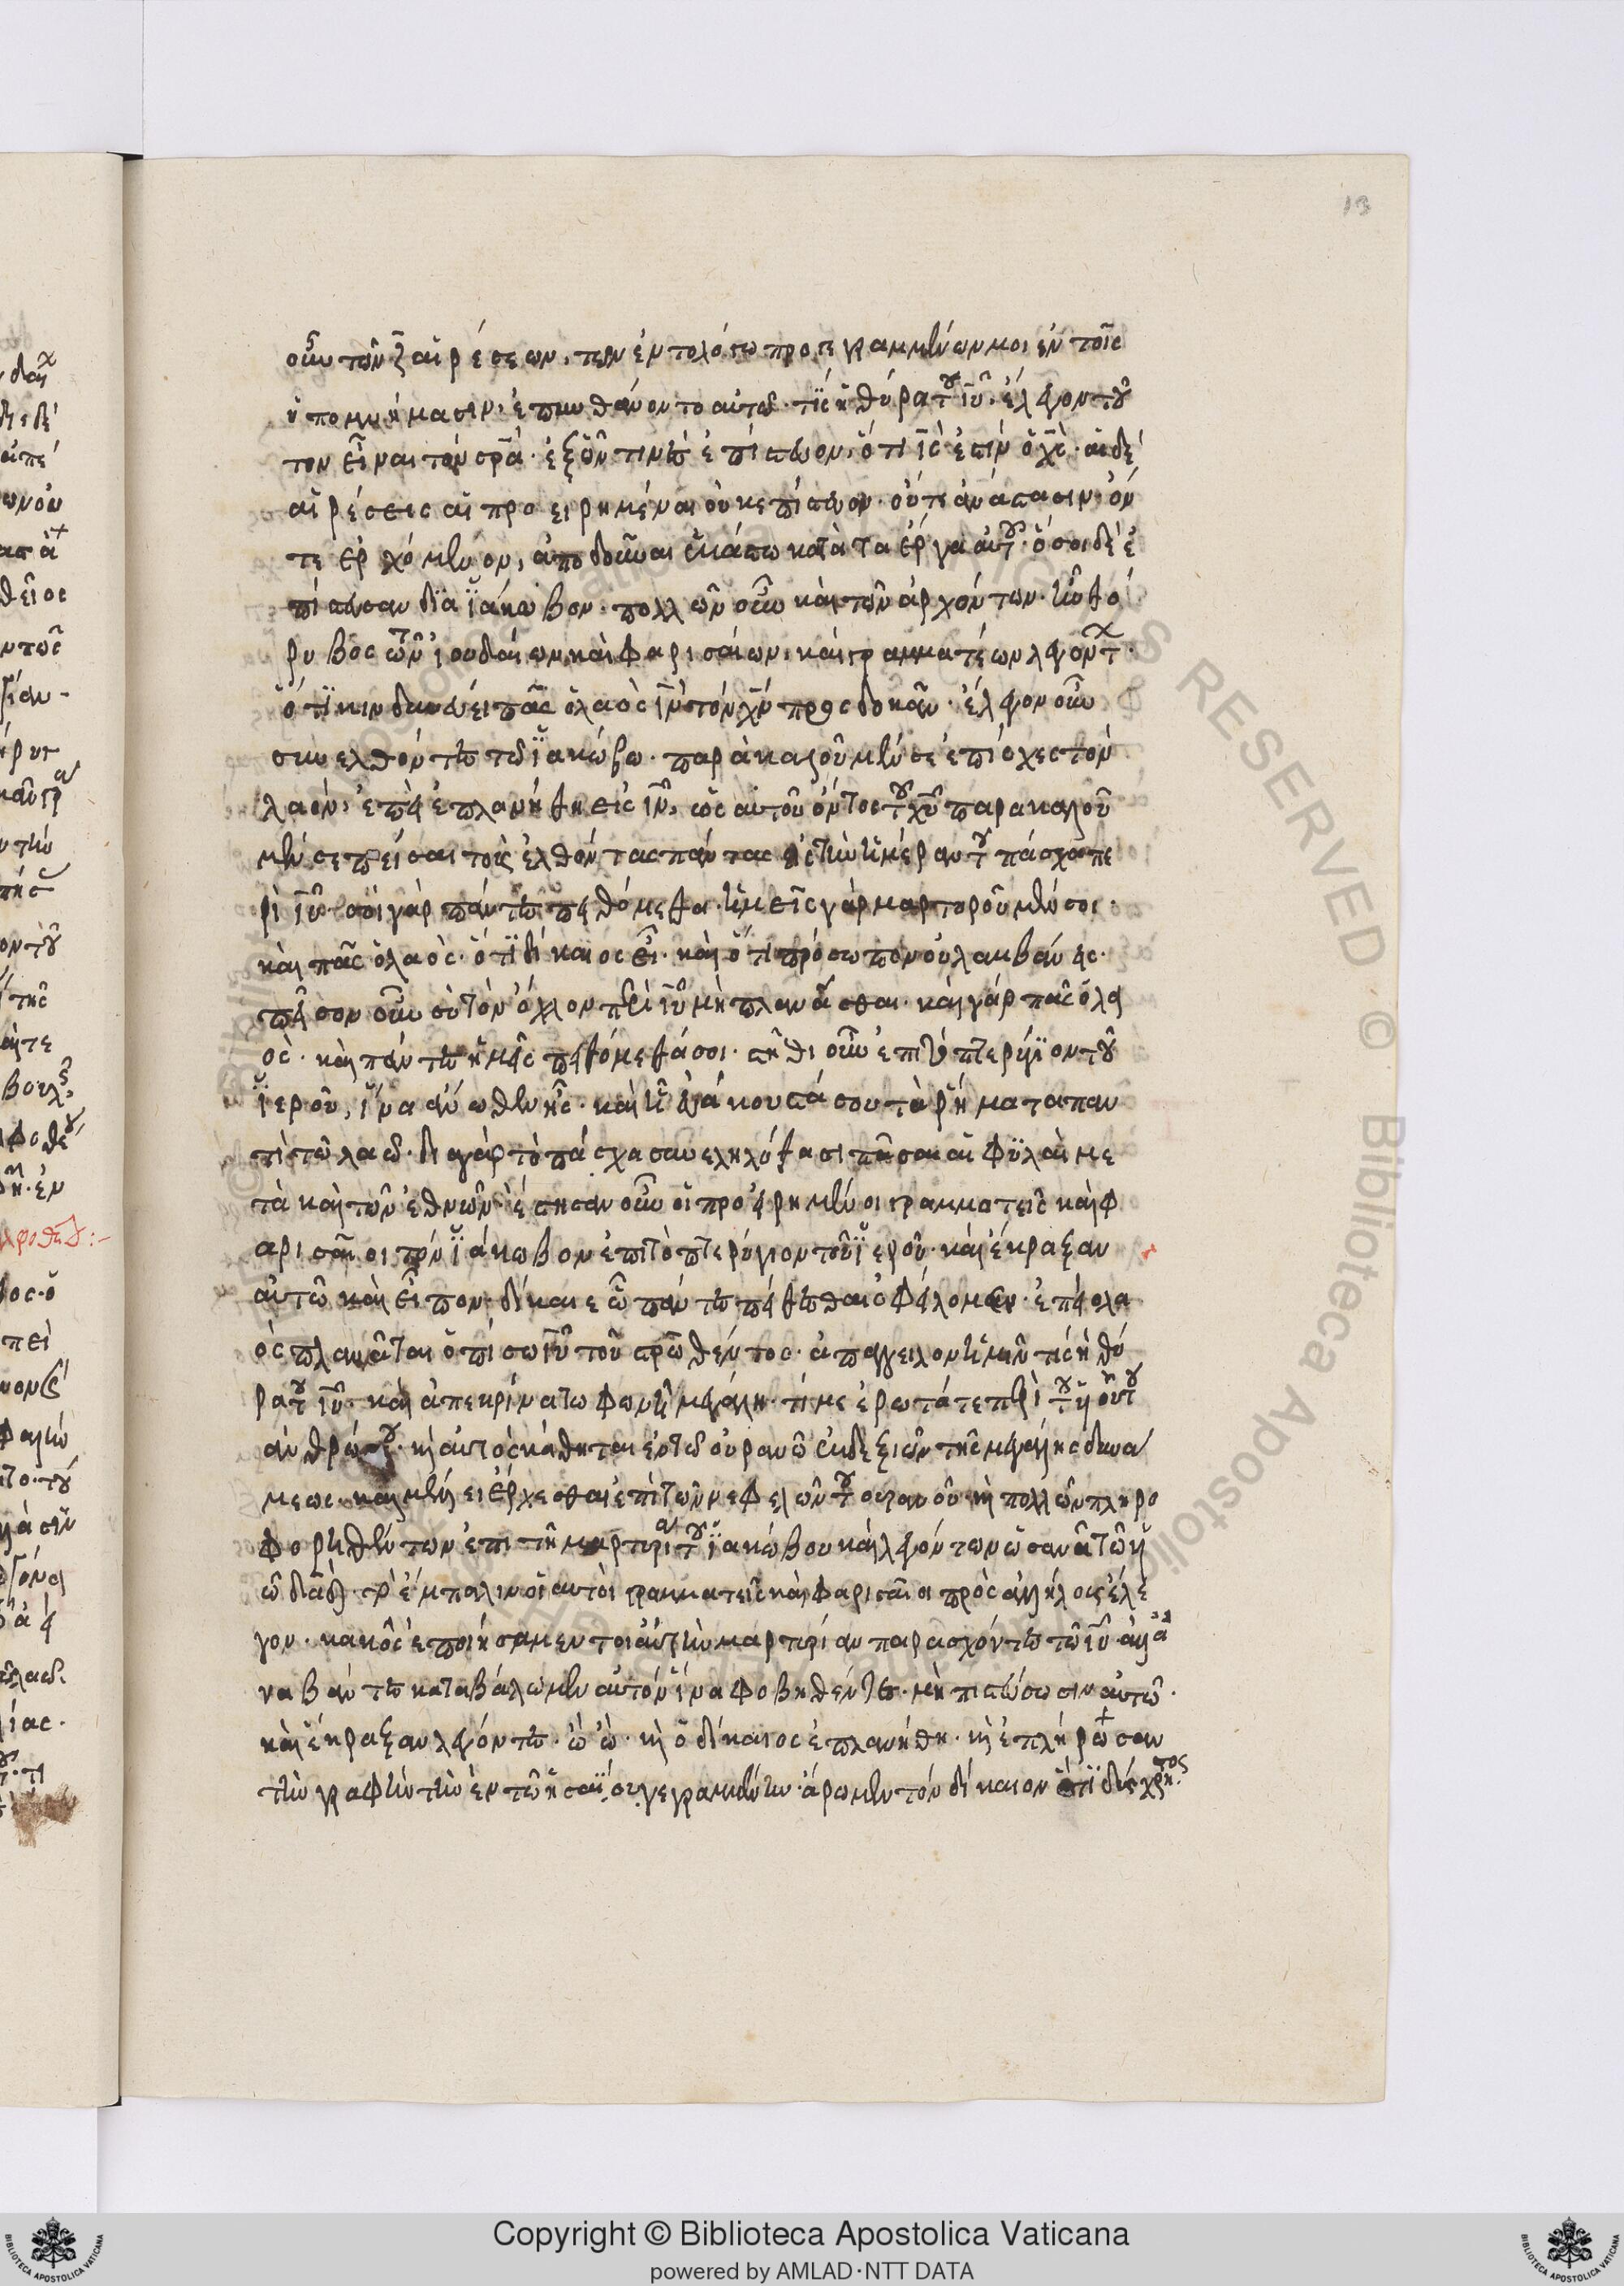 13
οὖν τῶν ζ αἱρέσεων, τῶν ἐν τῷ λαῷ τῶν προγεγραμμένων μοι ἐν τοῖς
ὑπομνήμασιν, ἐπυνθάνοντο αὐτῷ· τίς ἡ θύρα τοῦ ἰῦ· ἔλεγον τοῦ
τον εἶναι τὸν σρᾱ· ἐξ ὧν τινὲς ἐπίστευον, ὅτι ἰς ἐστὶν ὁ χς· αἱ δὲ
αἱρέσεις αἱ προειρημέναι οὐκ ἐπίστευον· οὔτε ἀνάστασιν· οὔ
τε ἐρχόμενον, ἀποδοῦναι ἑκάστω κατὰ τα ἔργα αὐτοῦ· ὅσοι δὲ ἐ
πίστευσαν δϊὰ ϊάκωβον· πολλῶν οὖν καὶ τῶν ἀρχόντων· ἦν θό
ρυβος τῶν ἰουδαίων καὶ φαρισαίων, καὶ γραμματέων λεγόντων·
ὅτϊ κινδυνεύει πᾶς ὁ λαὸς ἰν τὸν χν προσδοκᾶν· ἔλεγον οὖν
συνελθόντες τῷ ϊακώβω· παρακαλοῦμέν σε ἐπίσχες τὸν
λαόν, ἐπεὶ ἐπλανήθη εἰς ἰν, ὡς αὐτοῦ ὄντος τοῦ χῦ παρακαλοῦ
μέν σε πεῖσαι τοὺς ἐλθόντας πάντας εἰς τὴν ἡμέραν τοῦ πάσχα πε
ρὶ ἰῦ· σοὶ γὰρ πάντες πειθόμεθα· ἡμεῖς γὰρ μαρτυροῦμέν σοι·
καὶ πᾶς ὁ λαὸς· ὅτϊ δίκαιος εἶ· καὶ ὅτι πρόσωπον οὐ λαμβάνεις·
πεῖσον οὖν σὺ τὸν ὄχλον περὶ ἰῦ μὴ πλανᾶσθαι· καὶ γὰρ πᾶς ὁ λα
ὸς· καὶ πάντες ἡμεῖς πειθόμεθά σοι· στῆθι οὖν ἐπι τὸ πτερύγϊον τοῦ
ἱεροῦ, ἵνα ἄνωθεν ἦς· καὶ ἦ εὐάκουστά σου τὰ ῥήματα παν
τὶ τῶ λαῶ· διὰ γὰρ τὸ πάσχα συνεληλύθασι πᾶσαι αἱ φϋλαὶ με
τὰ καὶ τῶν ἐθνῶν· ἔστησαν οὖν οἱ προειρημένοι γραμματεῖς καὶ φ
αρισαῖοι τὸν ϊάκωβον ἐπὶ τὸ πτερύγιον τοῦ ἱεροῦ· καὶ ἔκραξαν
αὐτῶ καὶ εἶπον· δίκαιε ὧ πάντες πείθεσθαι ὀφείλομεν· ἐπεὶ ὁ λα
ὸς πλανᾶται ὀπίσω ἰῦ τοῦ σρωθέντος· ἀπάγγειλον ἡμῖν τίς ἡ θύ
ρα τοῦ ἰῦ· καὶ ἀπεκρίνατω φωνῆ μεγάλη· τί με ἐρωτάτε περὶ τοῦ ϋἱοῦ τοῦ
ἀνθρώπου· κὶ αὐτὸς κάθηται ἐν τῷ οὐρανῶ ἐκ δεξιῶν τῆς μεγάλης δυνά
μεως· καὶ μέλλει ἔρχεσθαι ἐπὶ τῶν νεφελῶν τοῦ οὐρανοῦ· κὶ πολλῶν πληρο
φορηθέντων ἐπι τῆ μαρτυρία τοῦ ϊακώβου καὶ λεγόντων ὡσανὰ τῶ ϋἱ
ῶ δᾱδ· τότε ἔμπαλιν οἱ αὐτοὶ γραμματεῖς καὶ φαρισαῖοι πρὸς ἀλλήλους ἔλε
γον· κακῶς ἐποιήσαμεν τοιαύτην μαρτυρίαν παρασχόντες τῶ ἰῦ· ἀλλὰ ἀ
ναβάντες καταβάλωμεν αὐτόν ἵνα φοβηθέντες· μὴ πιστεύσωσιν αὐτῶ·
καὶ ἔκραξαν λεγόντες· ὦ ὦ· κὶ ὁ δίκαιος ἐπλανήθη· κὶ ἐπλήρωσαν
τὴν γραφὴν τὴν ἐν τῶ ἡσαΐου γεγραμμένην· ἄρωμεν τὸν δίκαιον ὅτϊ δύσχρηστος
Copyright © Biblioteca Apostolica Vaticana
powered by AMLAD·NTT DATA